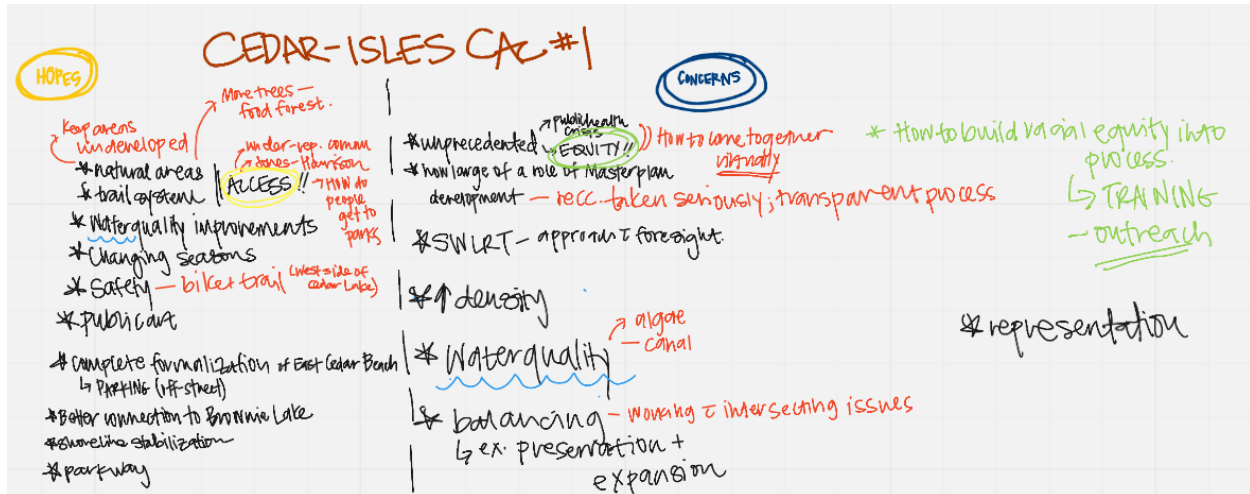 CEDAR-ISLES CAC #1
HOPES
More trees —
food forest.
Keep areas
undeveloped
* natural areas
* trail system
under-rep. comm
Jones-Harrison
ACCESS!!
→ HOW do
people
get to
parks
* Water quality improvements
* Changing seasons
* Safety — bike + trail (West side of
Cedar Lake)
* public art
* Complete formalization of East Cedar Beach
↳ PARKING (off-street)
* Better connection to Brownie Lake
* shoreline stabilization
* parkway
CONCERNS
* unprecedented
→ public health
crisis
↳ EQUITY!!
)) How to come together
virtually
* how large of a role of Masterplan
development — recc. taken seriously; transparent process
* SWLRT — approach c̄ foresight.
* ↑ density
* Water quality
→ algae
— canal
* balancing — working c̄ intersecting issues
↳ ex. preservation +
expansion
* How to build racial equity into
process.
↳ TRAINING
— outreach
* representation